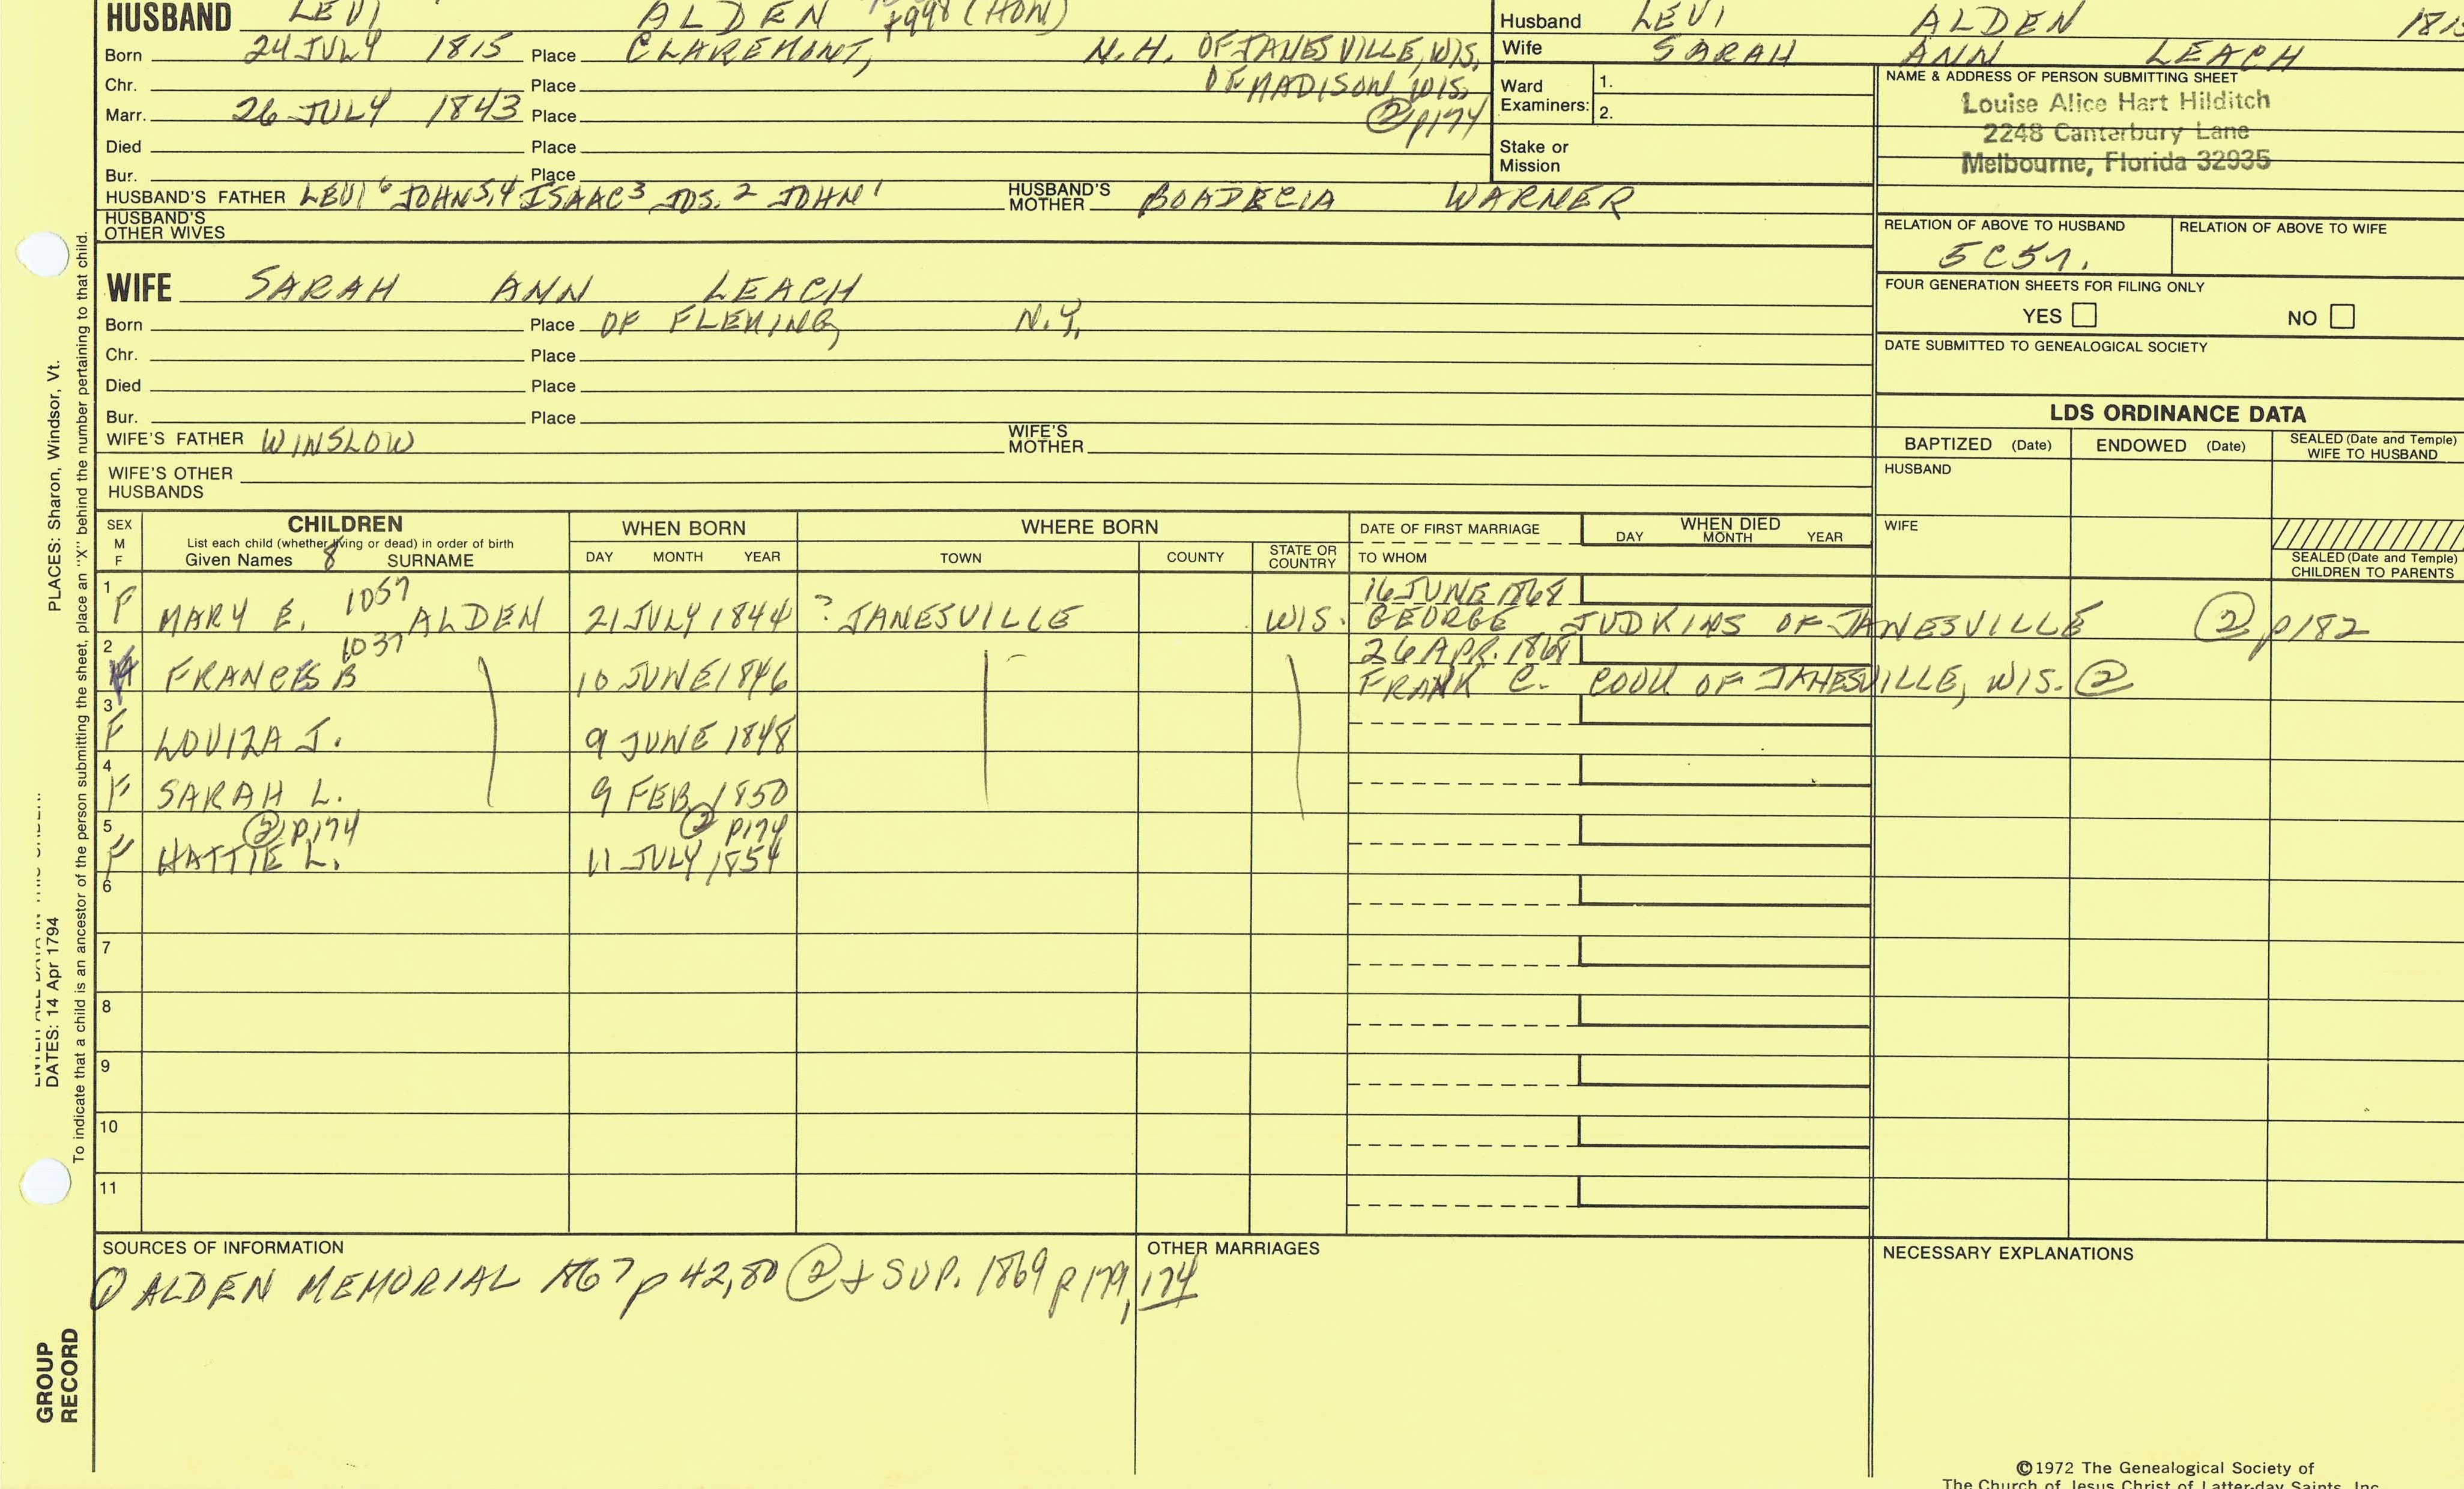 HUSBAND LEVI ALDEN 7998 (HON)
Born 24 JULY 1815 Place CLAREMONT, N.H. OF JANESVILLE, WIS,
Chr. Place OF MADISON, WIS.
Marr. 26 JULY 1843 Place ② p174
Died Place
Bur. Place
HUSBAND'S FATHER LEVI 6 JOHN 5,4 ISAAC 3 JOS. 2 JOHN 1 HUSBAND'S MOTHER BOADECIA WARNER
HUSBAND'S OTHER WIVES
Husband LEVI ALDEN
Wife SARAH ANN LEACH
Ward Examiners: 1.
2.
Stake or Mission
NAME & ADDRESS OF PERSON SUBMITTING SHEET
Louise Alice Hart Hilditch
2248 Canterbury Lane
Melbourne, Florida 32935
RELATION OF ABOVE TO HUSBAND RELATION OF ABOVE TO WIFE
FOUR GENERATION SHEETS FOR FILING ONLY
YES NO
DATE SUBMITTED TO GENEALOGICAL SOCIETY
WIFE SARAH ANN LEACH
Born Place OF FLEMING, N.Y.
Chr. Place
Died Place
Bur. Place
WIFE'S FATHER WINSLOW WIFE'S MOTHER
WIFE'S OTHER HUSBANDS
LDS ORDINANCE DATA
BAPTIZED (Date) ENDOWED (Date) SEALED (Date and Temple) WIFE TO HUSBAND
HUSBAND
WIFE
SEALED (Date and Temple) CHILDREN TO PARENTS
SEX M F
CHILDREN
List each child (whether living or dead) in order of birth
Given Names 8 SURNAME
WHEN BORN
DAY MONTH YEAR
WHERE BORN
TOWN COUNTY STATE OR COUNTRY
DATE OF FIRST MARRIAGE
TO WHOM
WHEN DIED
DAY MONTH YEAR
1 F MARY E. 1057 ALDEN 21 JULY 1844 ? JANESVILLE WIS. 16 JUNE 1868
GEORGE JUDKINS OF JANESVILLE ② p182
2 FRANCES B 1037 10 JUNE 1846 26 APR. 1868
FRANK C. COOK OF JANESVILLE, WIS. ②
3 F LOUIZA J. 9 JUNE 1848
4 F SARAH L. 9 FEB. 1850
5 F HATTIE L. ② P.174 11 JULY 1854 ② P174
6
7
8
9
10
11
SOURCES OF INFORMATION
① ALDEN MEMORIAL 1867 p 42,80 ② + SUP. 1869 p 179, 174
OTHER MARRIAGES
NECESSARY EXPLANATIONS
©1972 The Genealogical Society of
The Church of Jesus Christ of Latter-day Saints, Inc.
PLACES: Sharon, Windsor, Vt.
DATES: 14 Apr 1794
To indicate that a child is an ancestor of the person submitting the sheet, place an "X" behind the number pertaining to that child.
GROUP RECORD